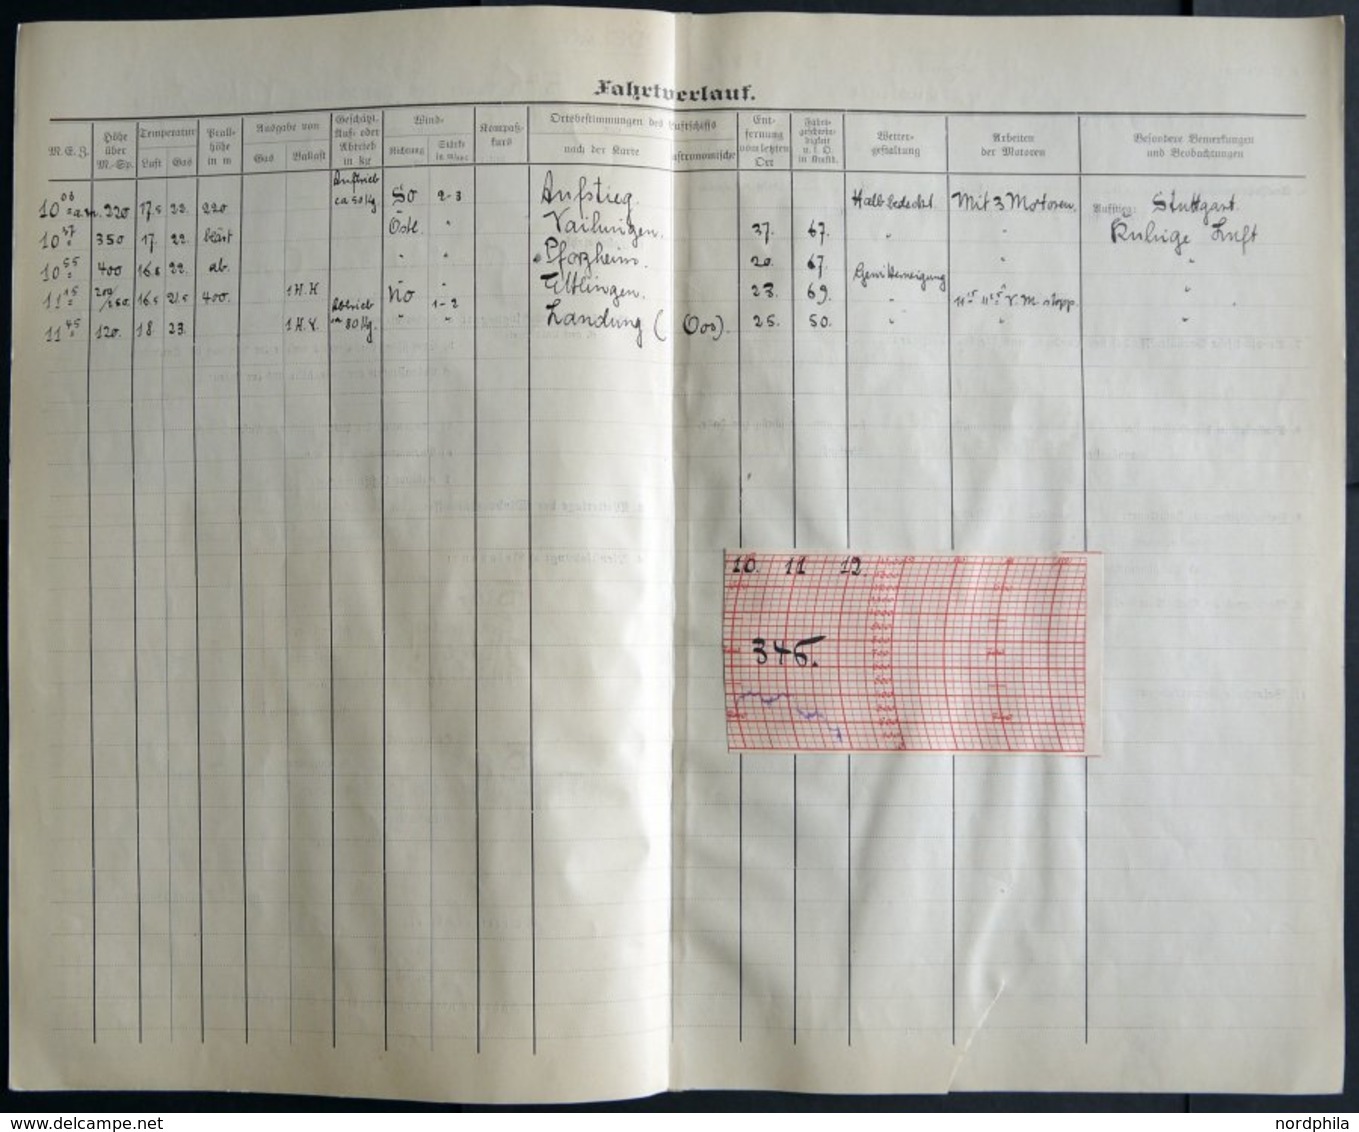 Fahrtverlauf.
M.E.Z. Höhe über M.-Sp. Temperatur Luft Gas Prallhöhe in m Ausgabe von Gas Ballast Geschätzt. Auf- oder Abtrieb in kg Wind- Richtung Stärke in m/sec Kompaßkurs Ortsbestimmungen des Luftschiffs nach der Karte astronomische Entfernung vom letzten Ort Fahrtgeschwindigkeit u. f. O. in km/St. Wettergestaltung Arbeiten der Motoren Besondere Bemerkungen und Beobachtungen
10 06 a.m. 220 17,5 22. 220 Auftrieb ca 50 Kg SO 2-3 Aufstieg. Halb bedeckt. Mit 3 Motoren. Aufstieg: Stuttgart.
10 37 350 17. 22. bläst Östl. " Vaihingen. 37. 67. " " Ruhige Luft
10 55 400 16.8 22. ab. " " Pforzheim. 20. 67. Gewitterneigung " "
11 15 200/250. 16,5 21,5 400. 1 H.H NO " Ettlingen. 23. 69. " V. M. stopp. "
11 45 120. 18 23. 1 H.V. Abtrieb ca 80 Kg. " 1-2 " Landung ( Oos). 25. 50. " "
10. 11 12.
346.
nordphila